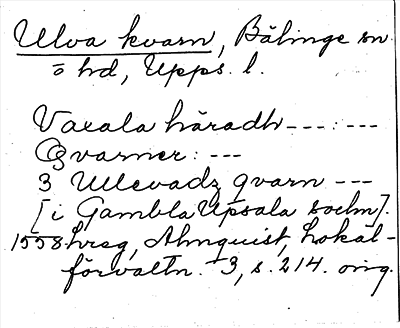 Ulva kvarn, Bälinge sn
o hd, Upps. l.
Vaxala häradh ---:---
Qvarner: ---
3 Ullevadz qvarn ---
[i Gambla Upsala sochn].
1558 hreg, Almquist, Lokal-
förvaltn. 3, s. 214. orig.